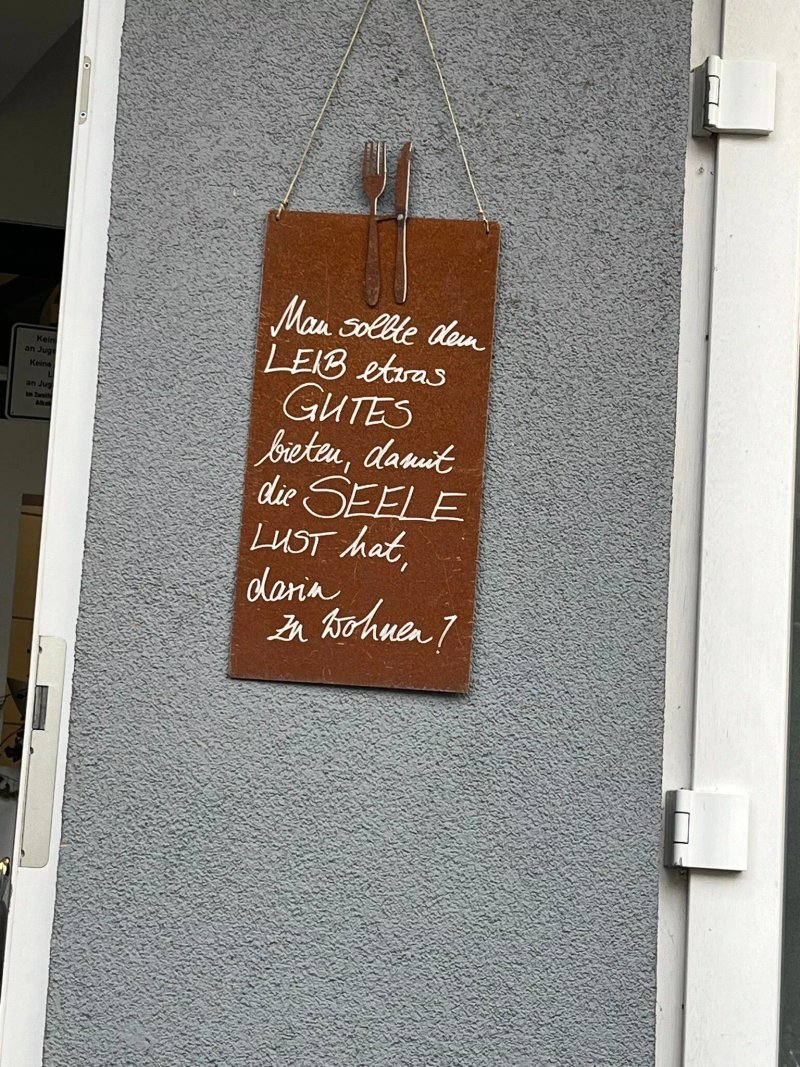 Man sollte dem
LEIB etwas
GUTES
bieten, damit
die SEELE
LUST hat,
darin
zu wohnen!
Kein
an Juge
Keine
an Jug